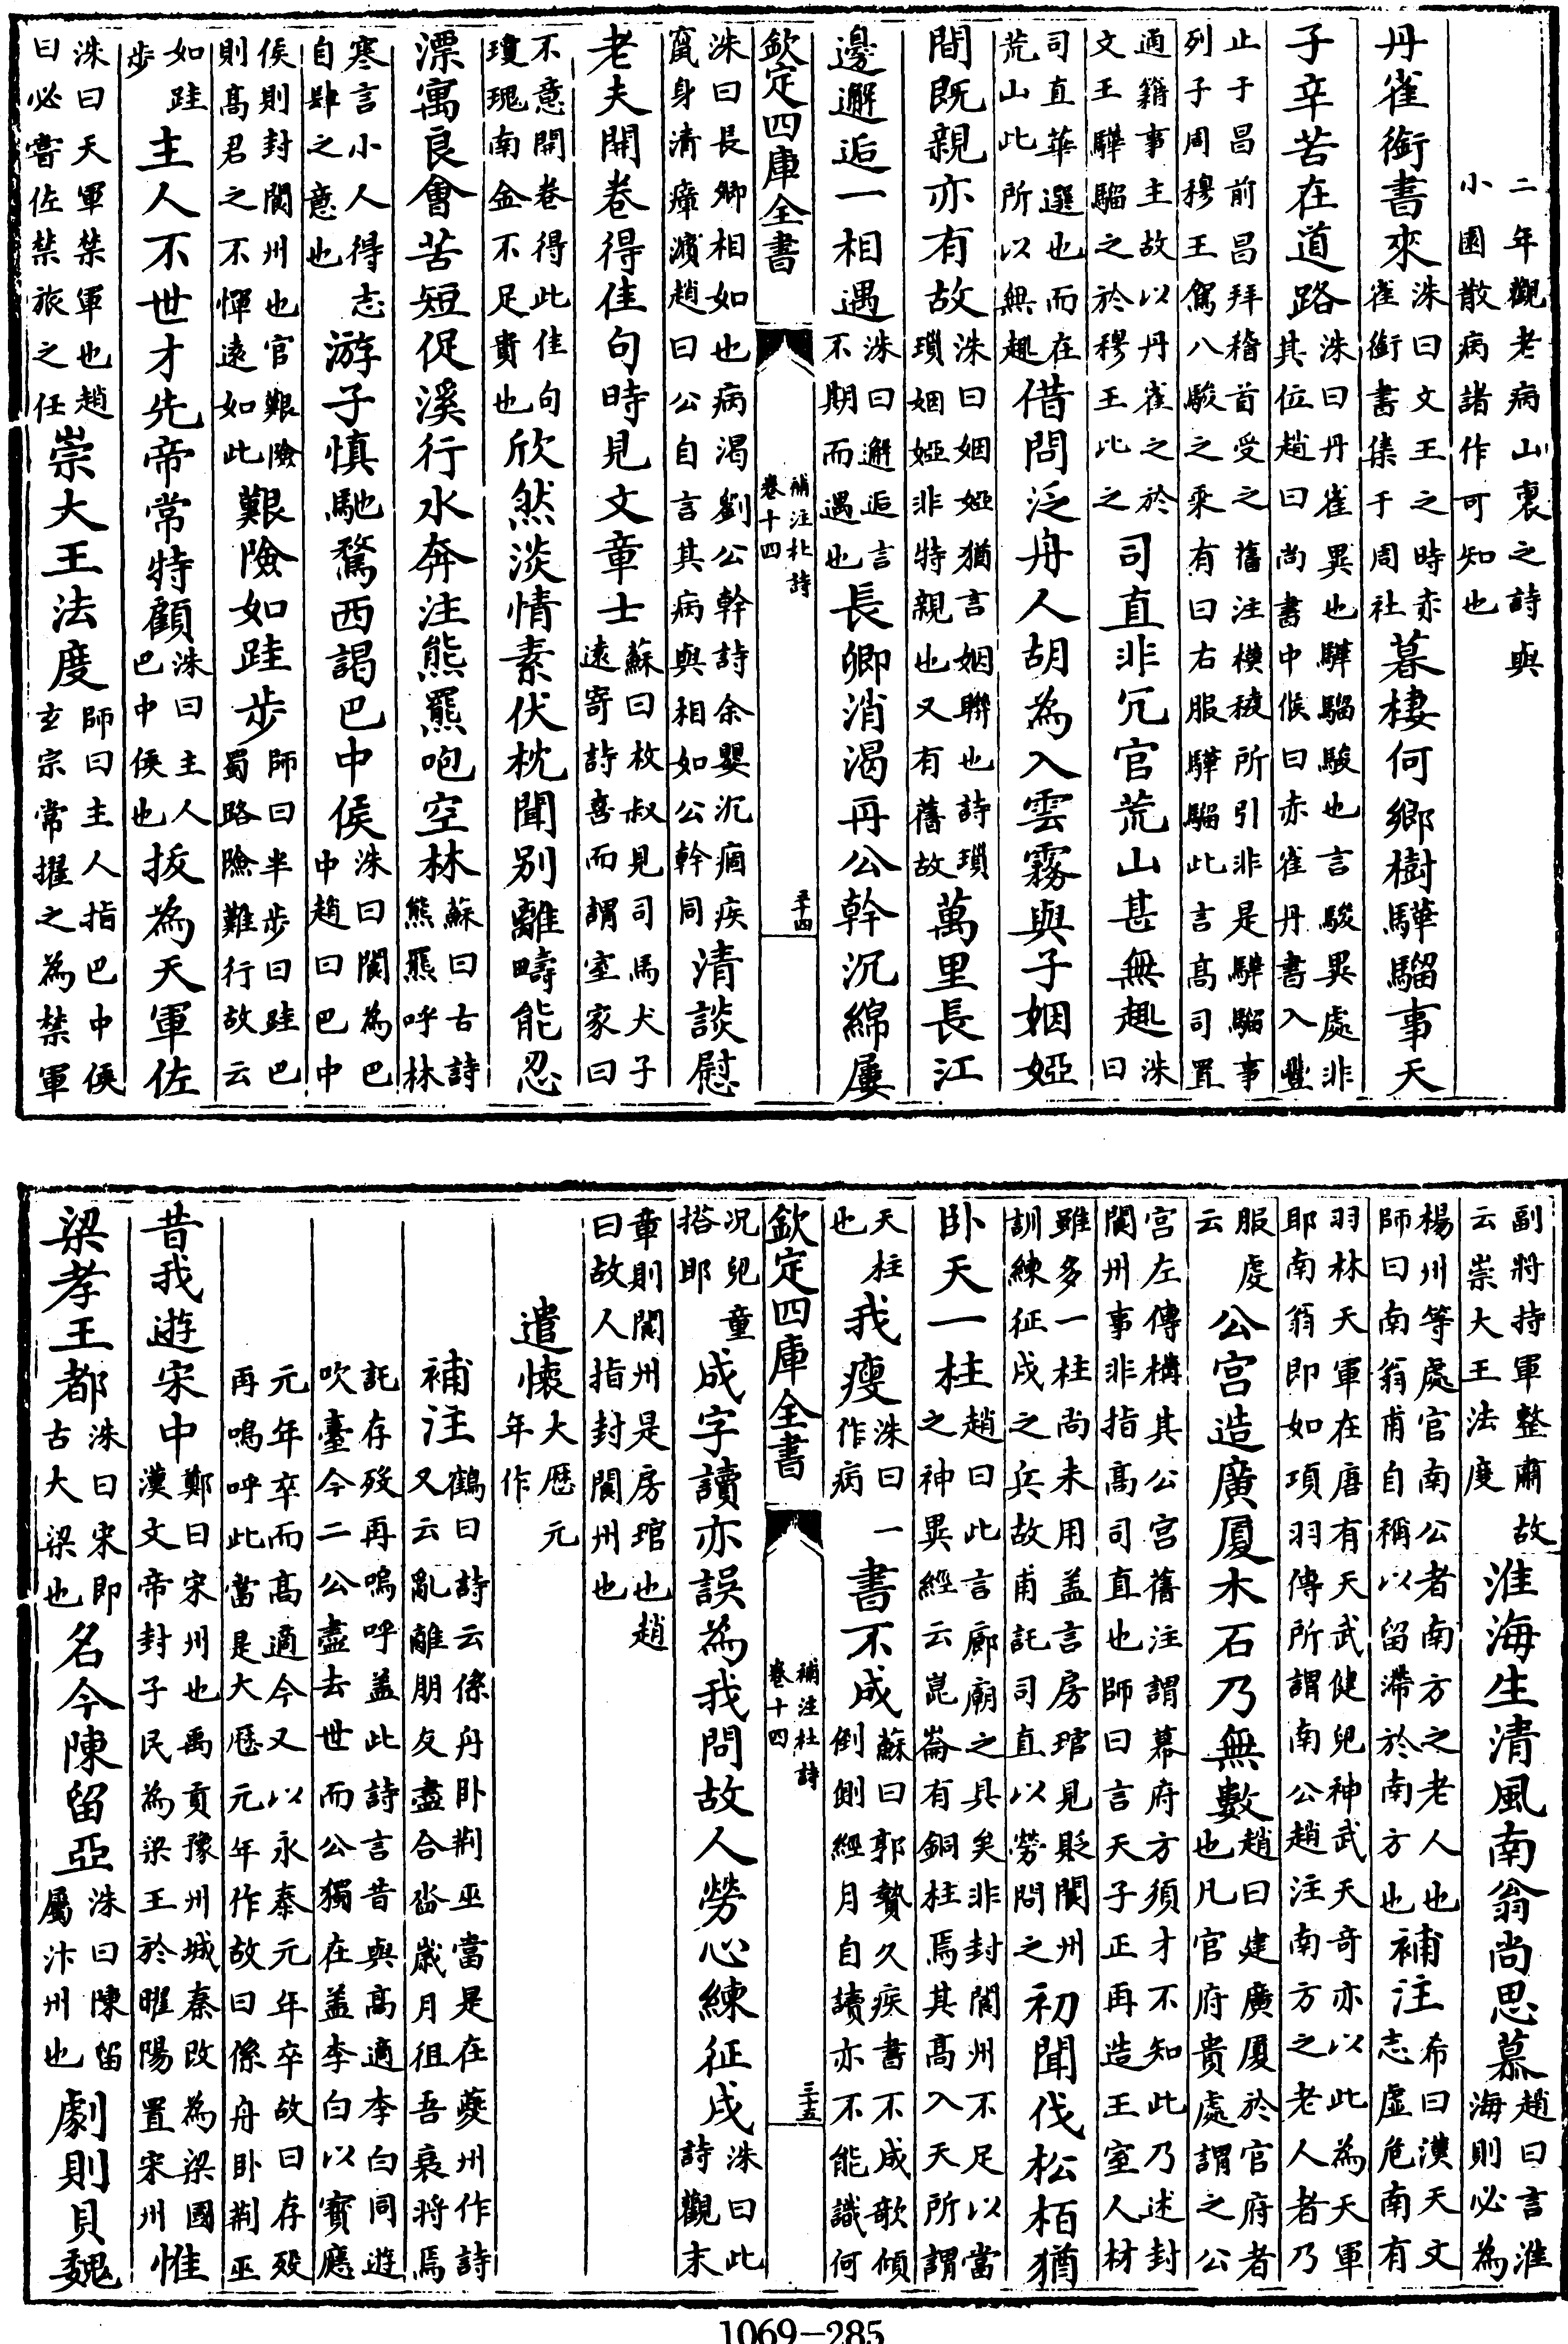 二年觀老病山裏之詩與
小園散病諸作可知也
丹雀銜書來洙曰文王之時赤雀銜書集于周社暮棲何鄉樹驊騮事天
子辛苦在道路洙曰丹雀異也驊騮駿也言駿異處非其位趙曰尚書中候曰赤雀丹書入豐
止于昌前昌拜稽首受之舊注模稜所引非是驊騮事
列子周穆王駕八駿之乘有曰右服驊騮此言高司置
適籍事主故以丹雀之於
文王驊騮之於穆王比之司直非冗官荒山甚無趣洙曰
司直華選也而在
荒山此所以無趣借問泛舟人胡為入雲霧與子姻婭
間既親亦有故洙曰姻婭猶言姻聯也詩瑣瑣姻婭非特親也又有舊故萬里長江
邊邂逅一相遇洙曰邂逅言不期而遇也長卿消渴再公幹沉綿屢
欽定四庫全書 補注杜詩 卷十四 三十四
洙曰長卿相如也病渴劉公幹詩余嬰沉痼疾
竄身清漳濱趙曰公自言其病與相如公幹同清談慰
老夫開卷得佳句時見文章士蘇曰枚叔見司馬犬子遠寄詩喜而謂室家曰
不意開卷得此佳句
瓊瑰南金不足貴也欣然淡情素伏枕聞別離疇能忍
漂寓良會苦短促溪行水奔注熊羆咆空林蘇曰古詩熊羆呼林
寒言小人得志
自肆之意也游子慎馳騖西謁巴中侯洙曰閬為巴中趙曰巴中
侯則封閬州也官艱險
則高君之不憚遠如此艱險如跬步師曰半步曰跬巴蜀路險難行故云
如跬
步主人不世才先帝常特顧洙曰主人巴中侯也拔為天軍佐
洙曰天軍禁軍也趙
曰必嘗佐禁旅之任崇大王法度師曰主人指巴中侯玄宗常擢之為禁軍
副將持軍整肅故
云崇大王法度淮海生清風南翁尚思慕趙曰言淮海則必為
楊州等處官南公者南方之老人也
師曰南翁甫自稱以留滯於南方也補注希曰漢天文志虛危南有
羽林天軍在唐有天武健兒神武天奇亦以此為天軍
耶南翁即如項羽傳所謂南公趙注南方之老人者乃
服虔
云公宮造廣厦木石乃無數趙曰建廣厦於官府者也凡官府貴處謂之公
宮左傳構其公宮舊注謂幕府方須才不知此乃述封
閬州事非指高司直也師曰言天子正再造王室人材
雖多一柱尚未用盖言房琯見貶閬州
訓練征戍之兵故甫託司直以勞問之初聞伐松柏猶
卧天一柱趙曰此言廊廟之具矣非封閬州不足以當之神異經云崑崙有銅柱焉其高入天所謂
天柱
也我瘦洙曰一作病書不成蘇曰郭贄久疾書不成欹傾倒側經月自讀亦不能識何
欽定四庫全書 補注杜詩 卷十四 三十五
況兒童
搭耶成字讀亦誤為我問故人勞心練征戍洙曰此詩觀末
章則閬州是房琯也趙
曰故人指封閬州也
遣懷大歷元年作
補注鶴曰詩云係舟卧荆巫當是在夔州作詩又云亂離朋友盡合沓歲月徂吾衰將焉
託存歿再嗚呼盖此詩言昔與高適李白同遊
吹臺今二公盡去世而公獨在盖李白以寶應
元年卒而高適今又以永泰元年卒故曰存歿
再嗚呼此當是大歷元年作故曰係舟卧荆巫
昔我遊宋中鄭曰宋州也禹貢豫州城秦改為梁國漢文帝封子民為梁王於睢陽置宋州惟
梁孝王都洙曰宋即古大梁也名今陳留亞洙曰陳留屬汴州也劇則貝魏
1069-285